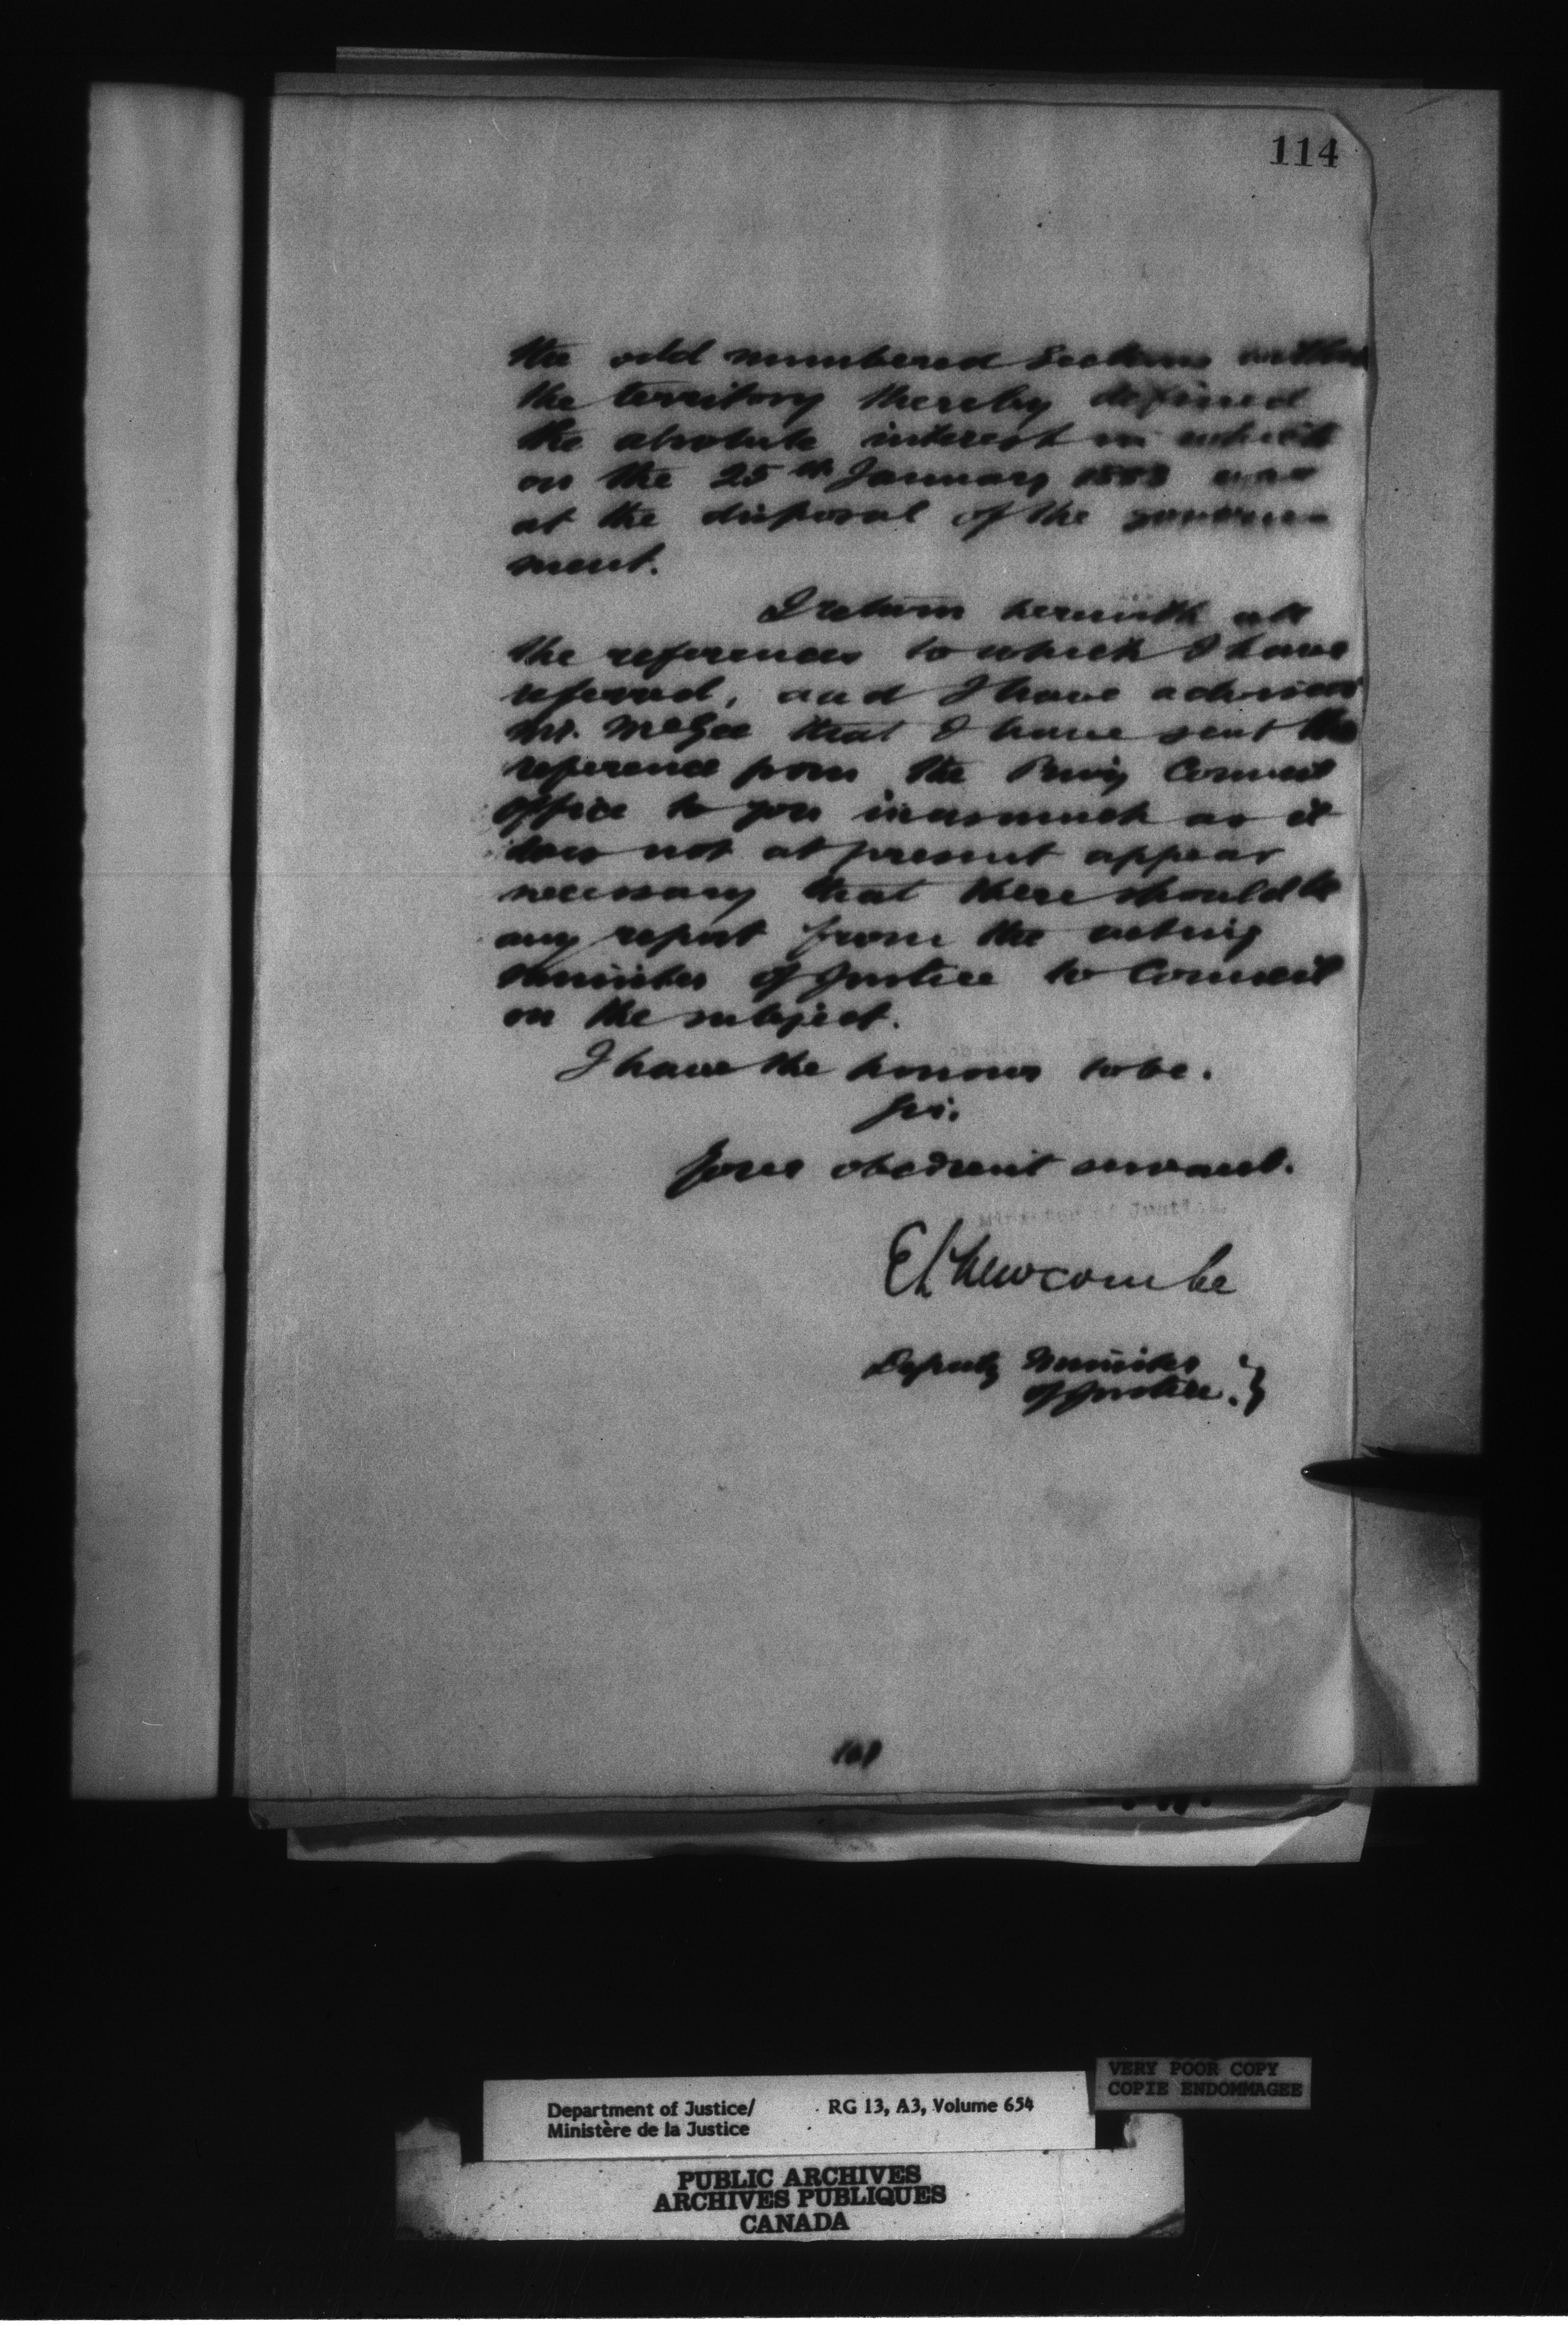 114
the odd numbered sections within
the territory thereby defined
the absolute interest in which
on the 25th January 1883 was
at the disposal of the govern
ment.
I return herewith all
the references to which I have
referred, and I have advised
Mr. McGee that I have sent the
reference from the Privy Council
office to you inasmuch as it
does not at present appear
necessary that there should be
any report from the acting
Minister of Justice to Council
on the subject.
I have the honour to be.
Sir.
Your obedient servant.
E L Newcombe
Deputy Minister
of Justice.
VERY POOR COPY
COPIE ENDOMMAGEE
Department of Justice/ RG 13, A3, Volume 654
Ministère de la Justice
PUBLIC ARCHIVES
ARCHIVES PUBLIQUES
CANADA